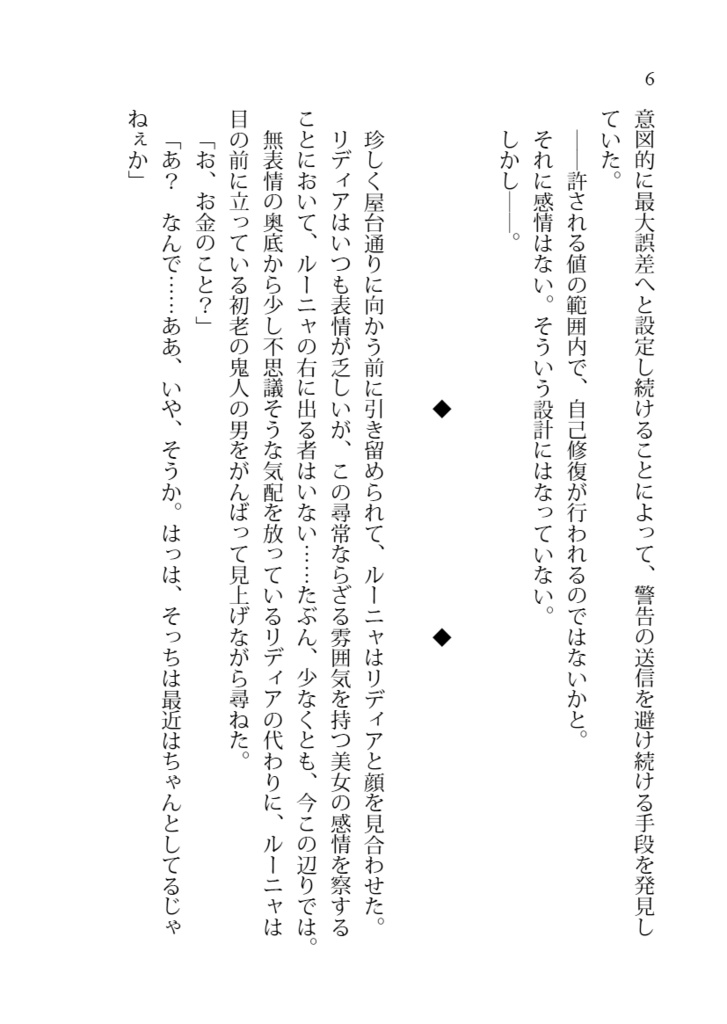 6
意図的に最大誤差へと設定し続けることによって、警告の送信を避け続ける手段を発見し
ていた。
――許される値の範囲内で、自己修復が行われるのではないかと。
それに感情はない。そういう設計にはなっていない。
しかし――。
◆　◆
珍しく屋台通りに向かう前に引き留められて、ルーニャはリディアと顔を見合わせた。
リディアはいつも表情が乏しいが、この尋常ならざる雰囲気を持つ美女の感情を察する
ことにおいて、ルーニャの右に出る者はいない……たぶん、少なくとも、今この辺りでは。
無表情の奥底から少し不思議そうな気配を放っているリディアの代わりに、ルーニャは
目の前に立っている初老の鬼人の男をがんばって見上げながら尋ねた。
「お、お金のこと？」
「あ？　なんで……ああ、いや、そうか。はっは、そっちは最近はちゃんとしてるじゃ
ねぇか」